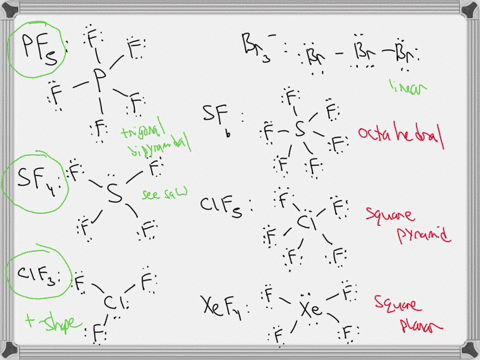 PF5:
F
F
F
P
F
F
trigonal
bipyramidal
SF4:
F
F
S
F
F
see saw
ClF3:
F
F
Cl
F
t-shape
Br3-:
Br - Br - Br:
linear
SF6:
F
F
S
F
F
F
octahedral
ClF5:
F
F
F
Cl
F
F
square
pyramid
XeF4:
F
F
Xe
F
F
square
planar